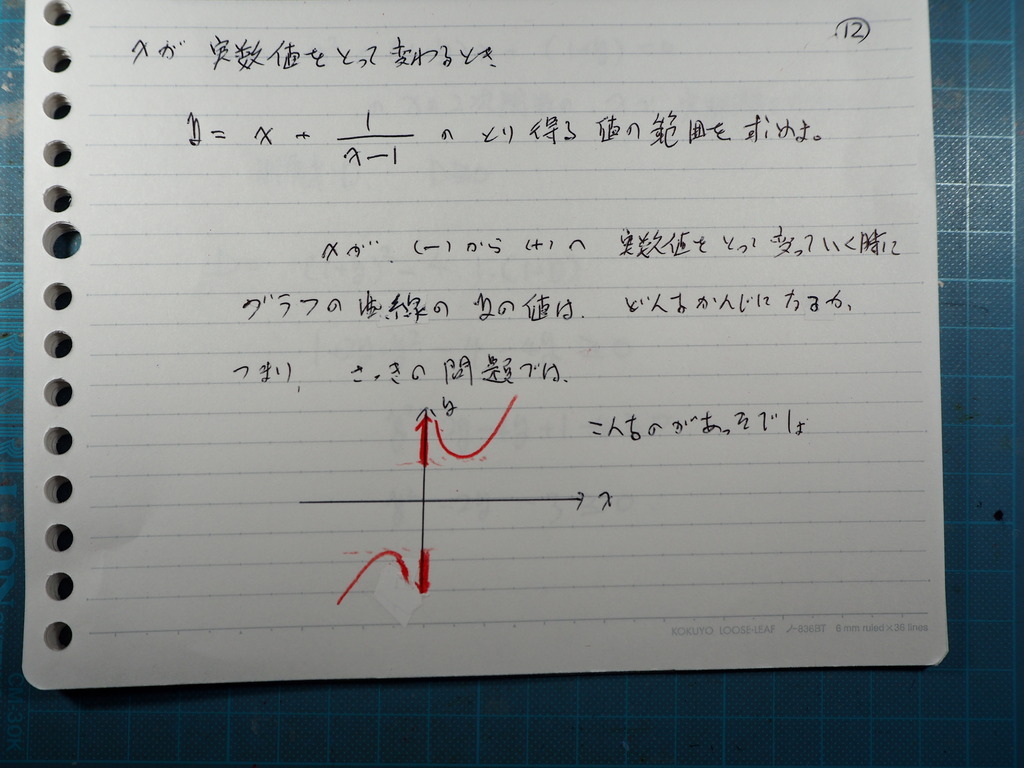 ⑫
xが 実数値をとって変わるとき
y = x + 1/(x-1) の とり得る 値の範囲を求めよ。
xが (-) から (+) へ 実数値をとって変っていく時に
グラフの曲線の yの値は、どんなかんじになるか、
つまり、 さっきの問題では、
y
こんなのがあったでしょ
x
KOKUYO LOOSE-LEAF ノ-836BT 6 mm ruled×36 lines